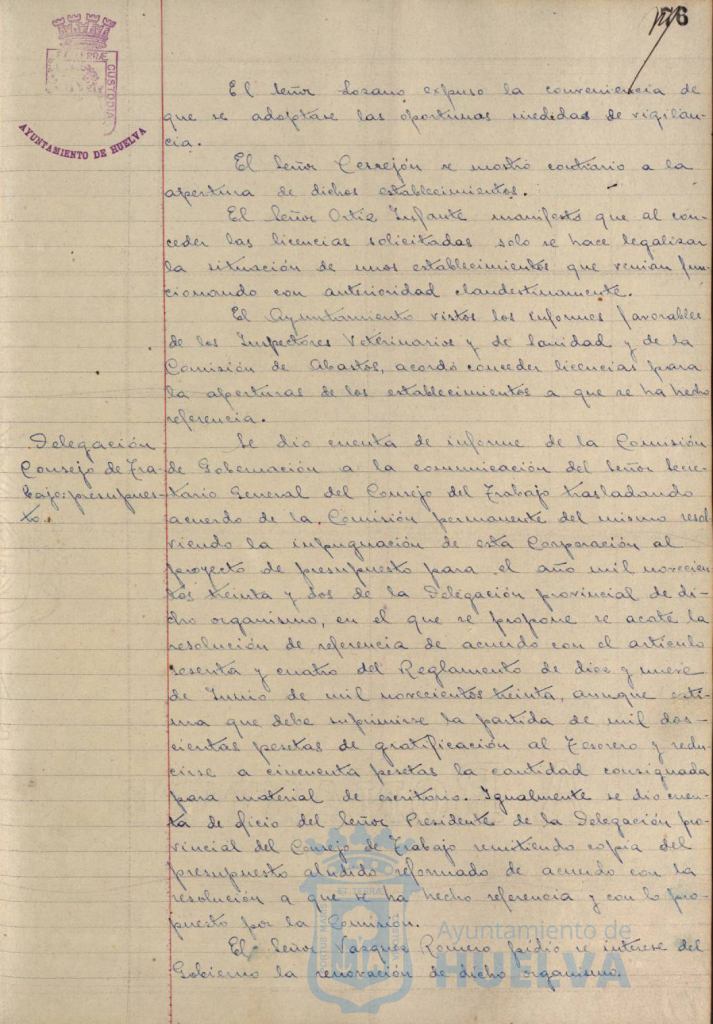 76
PORTUS MARIS
ET TERRÆ
CUSTODIA
AYUNTAMIENTO DE HUELVA
El Señor Lozano expuso la conveniencia de
que se adoptase las oportunas medidas de vigilan-
cia.
El Señor Cerrejón se mostró contrario a la
apertura de dichos establecimientos.
El Señor Ortiz Infante manifestó que al con-
ceder las licencias solicitadas solo se hace legalizar
la situación de unos establecimientos que venían fun-
cionando con anterioridad clandestinamente.
El Ayuntamiento vistos los informes favorables
de los Inspectores Veterinarios y de Sanidad y de la
Comisión de Abastos, acordó conceder licencias para
la aperturas de los establecimientos a que se ha hecho
referencia.
Delegación
Consejo de Tra-
bajo: presupues-
to.
Se dio cuenta de informe de la Comisión
de Gobernación a la comunicación del Señor Secre-
tario General del Consejo del Trabajo trasladando
acuerdo de la Comisión permanente del mismo resol-
viendo la impugnación de esta Corporación al
proyecto de presupuesto para el año mil novecien-
tos treinta y dos de la Delegación provincial de di-
cho organismo, en el que se propone se acate la
resolución de referencia de acuerdo con el artículo
sesenta y cuatro del Reglamento de diez y nueve
de Junio de mil novecientos treinta, aunque esti-
ma que debe suprimirse la partida de mil dos-
cientas pesetas de gratificación al Tesorero y redu-
cirse a cincuenta pesetas la cantidad consignada
para material de escritorio. Igualmente se dio cuen-
ta de oficio del Señor Presidente de la Delegación pro-
vincial del Consejo de Trabajo remitiendo copia del
presupuesto aludido reformado de acuerdo con la
resolución a que se ha hecho referencia y con lo pro-
puesto por la Comisión.
El Señor Vazquez Romero pidió se interese del
Gobierno la renovación de dicho organismo.
PORTUS MARIS
ET TERRÆ
CUSTODIA
Ayuntamiento de
HUELVA